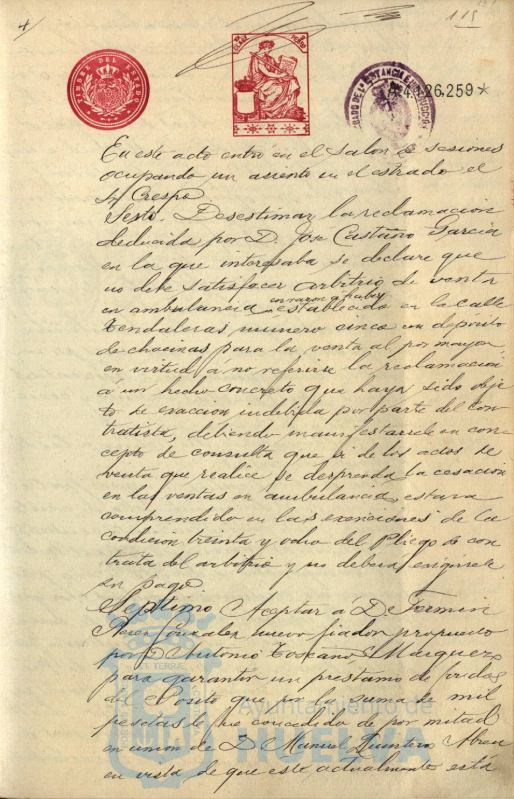 4/
115
TIMBRE DEL ESTADO
A4.026.259*
En este acto entró en el Salon de sesiones
ocupando un asiento en el estrado el
Sr Crespo
Sexto. Desestimar la reclamacion
deducida por D. Jose Castaño Garcia
en la que interesaba se declare que
no debe satisfacer arbitrio de venta
en ambulancia en razon á haber establecido en la calle
Tendaleras, numero cinco un deposito
de chacinas para la venta al por mayor
en virtud a no referirse la reclamacion
á un hecho concreto que haya sido obje
to de exaccion indebida por parte del con
tratista, debiendo manifestarsele en con
cepto de consulta que si de los actos de
venta que realice se desprende la cesacion
en las ventas en ambulancia, estara
comprendido en las exenciones de la
condicion treinta y ocho del Pliego de con
trata del arbitrio y no debera exigirsele
su pago
Septimo Aceptar á D. Fermin
Gonzalez nuevo fiador propuesto
por D Antonio Toscano Marquez
para garantir un prestamo de fondos
del Posito que por la suma de mil
pesetas le fue concedido de por mitad
en union de D Manuel Quintero Abreu
en vista de que este actualmente está
Ayuntamiento de
HUELVA